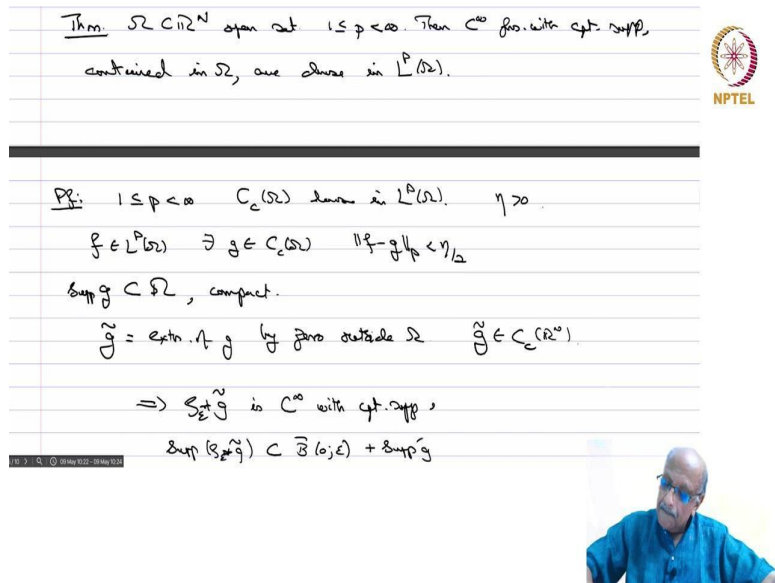 Thm. Ω ⊂ ℝ^N open set. 1 ≤ p < ∞. Then C^∞ fns. with cpt. supp,
contained in Ω, are dense in L^p(Ω).
NPTEL
Pf: 1 ≤ p < ∞ C_c(Ω) dense in L^p(Ω). η > 0.
f ∈ L^p(Ω) ∃ g ∈ C_c(Ω) ‖f-g‖_p < η/2
supp g ⊂ Ω, compact.
g̃ = extn. of g by zero outside Ω g̃ ∈ C_c(ℝ^N).
⇒ ρ_ε * g̃ is C^∞ with cpt. supp,
supp (ρ_ε * g̃) ⊂ B̄(0;ε) + supp g
/10 09 May 10:22 - 09 May 10:24